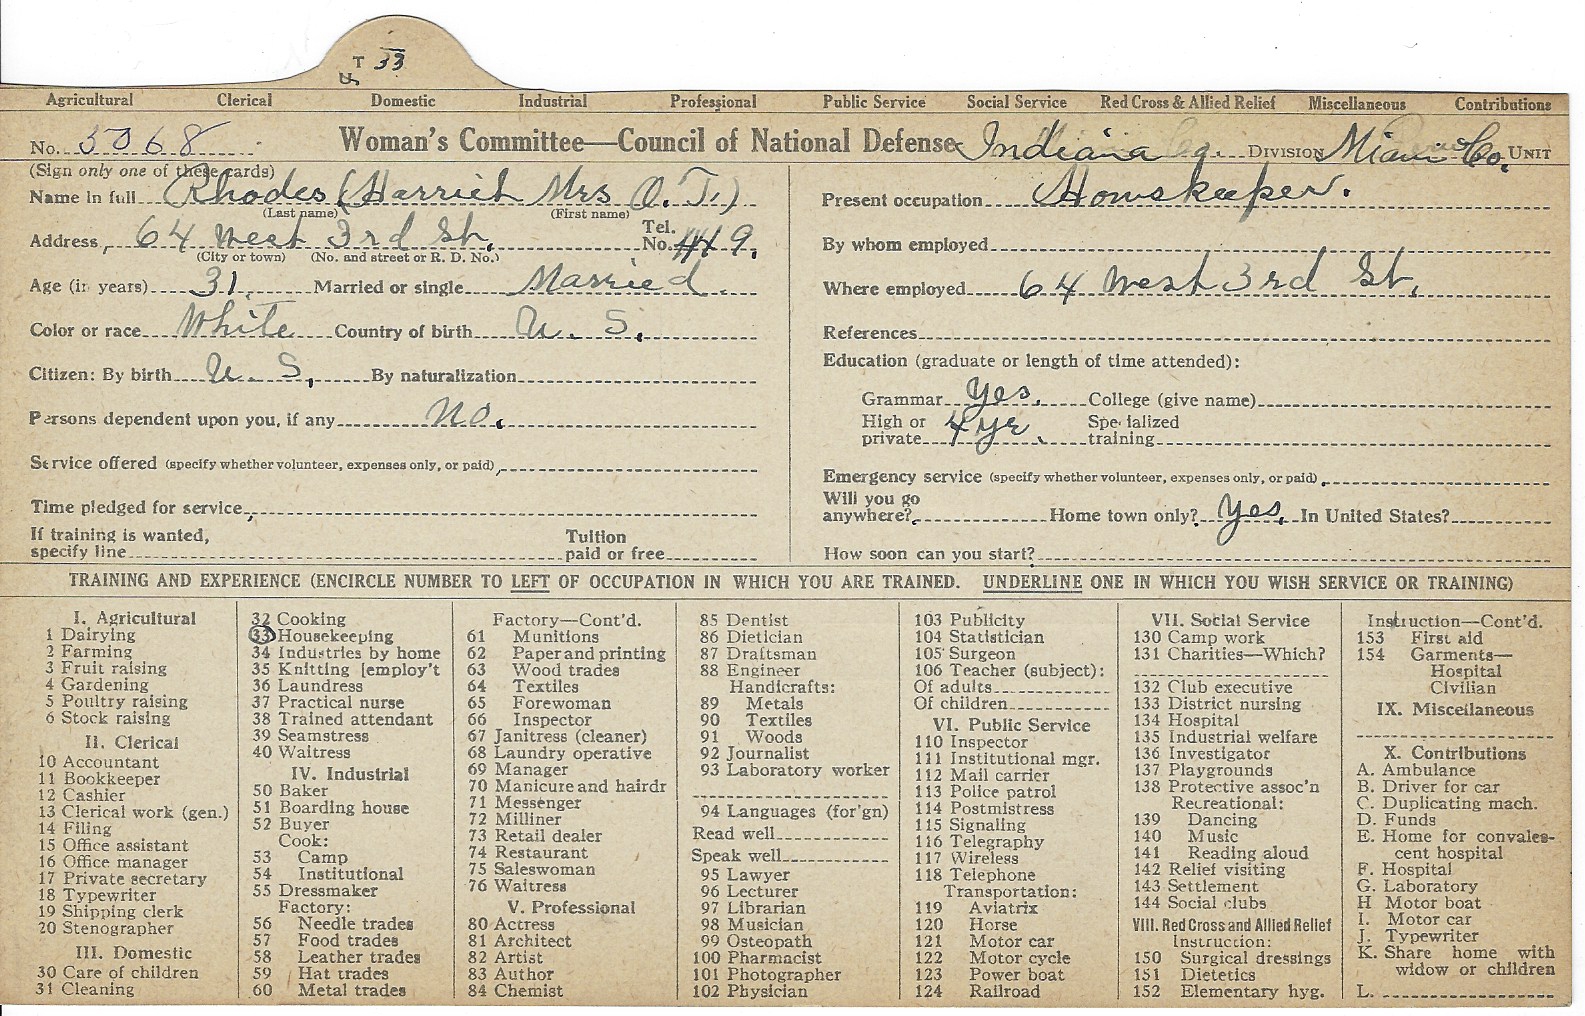 T 33
Agricultural Clerical Domestic Industrial Professional Public Service Social Service Red Cross & Allied Relief Miscellaneous Contributions
No. 3068 Woman's Committee—Council of National Defense Indiana DIVISION Miami Co. UNIT
(Sign only one of these cards)
Name in full Rhodes (Harriet Mrs O. T.)
(Last name) (First name)
Address, 64 West 3rd St. Tel. No. 449.
(City or town) (No. and street or R. D. No.)
Age (in years) 31. Married or single Married.
Color or race White Country of birth U. S.
Citizen: By birth U. S. By naturalization
Persons dependent upon you, if any No.
Service offered (specify whether volunteer, expenses only, or paid)
Time pledged for service
If training is wanted,
specify line Tuition paid or free
Present occupation Howskeeper.
By whom employed
Where employed 64 West 3rd St.
References
Education (graduate or length of time attended):
Grammar Yes. College (give name)
High or private 4 ye. Specialized training
Emergency service (specify whether volunteer, expenses only, or paid)
Will you go
anywhere? Home town only? Yes. In United States?
How soon can you start?
TRAINING AND EXPERIENCE (ENCIRCLE NUMBER TO LEFT OF OCCUPATION IN WHICH YOU ARE TRAINED. UNDERLINE ONE IN WHICH YOU WISH SERVICE OR TRAINING)
I. Agricultural
1 Dairying
2 Farming
3 Fruit raising
4 Gardening
5 Poultry raising
6 Stock raising
II. Clerical
10 Accountant
11 Bookkeeper
12 Cashier
13 Clerical work (gen.)
14 Filing
15 Office assistant
16 Office manager
17 Private secretary
18 Typewriter
19 Shipping clerk
20 Stenographer
III. Domestic
30 Care of children
31 Cleaning
32 Cooking
33 Housekeeping
34 Industries by home
35 Knitting [employ't
36 Laundress
37 Practical nurse
38 Trained attendant
39 Seamstress
40 Waitress
IV. Industrial
50 Baker
51 Boarding house
52 Buyer
Cook:
53 Camp
54 Institutional
55 Dressmaker
Factory:
56 Needle trades
57 Food trades
58 Leather trades
59 Hat trades
60 Metal trades
Factory—Cont'd.
61 Munitions
62 Paper and printing
63 Wood trades
64 Textiles
65 Forewoman
66 Inspector
67 Janitress (cleaner)
68 Laundry operative
69 Manager
70 Manicure and hairdr
71 Messenger
72 Milliner
73 Retail dealer
74 Restaurant
75 Saleswoman
76 Waitress
V. Professional
80 Actress
81 Architect
82 Artist
83 Author
84 Chemist
85 Dentist
86 Dietician
87 Draftsman
88 Engineer
Handicrafts:
89 Metals
90 Textiles
91 Woods
92 Journalist
93 Laboratory worker
94 Languages (for'gn)
Read well
Speak well
95 Lawyer
96 Lecturer
97 Librarian
98 Musician
99 Osteopath
100 Pharmacist
101 Photographer
102 Physician
103 Publicity
104 Statistician
105 Surgeon
106 Teacher (subject):
Of adults
Of children
VI. Public Service
110 Inspector
111 Institutional mgr.
112 Mail carrier
113 Police patrol
114 Postmistress
115 Signaling
116 Telegraphy
117 Wireless
118 Telephone
Transportation:
119 Aviatrix
120 Horse
121 Motor car
122 Motor cycle
123 Power boat
124 Railroad
VII. Social Service
130 Camp work
131 Charities—Which?
132 Club executive
133 District nursing
134 Hospital
135 Industrial welfare
136 Investigator
137 Playgrounds
138 Protective assoc'n
Recreational:
139 Dancing
140 Music
141 Reading aloud
142 Relief visiting
143 Settlement
144 Social clubs
VIII. Red Cross and Allied Relief
Instruction:
150 Surgical dressings
151 Dietetics
152 Elementary hyg.
Instruction—Cont'd.
153 First aid
154 Garments—
Hospital
Civilian
IX. Miscellaneous
X. Contributions
A. Ambulance
B. Driver for car
C. Duplicating mach.
D. Funds
E. Home for convales-
cent hospital
F. Hospital
G. Laboratory
H Motor boat
I. Motor car
J. Typewriter
K. Share home with
widow or children
L.